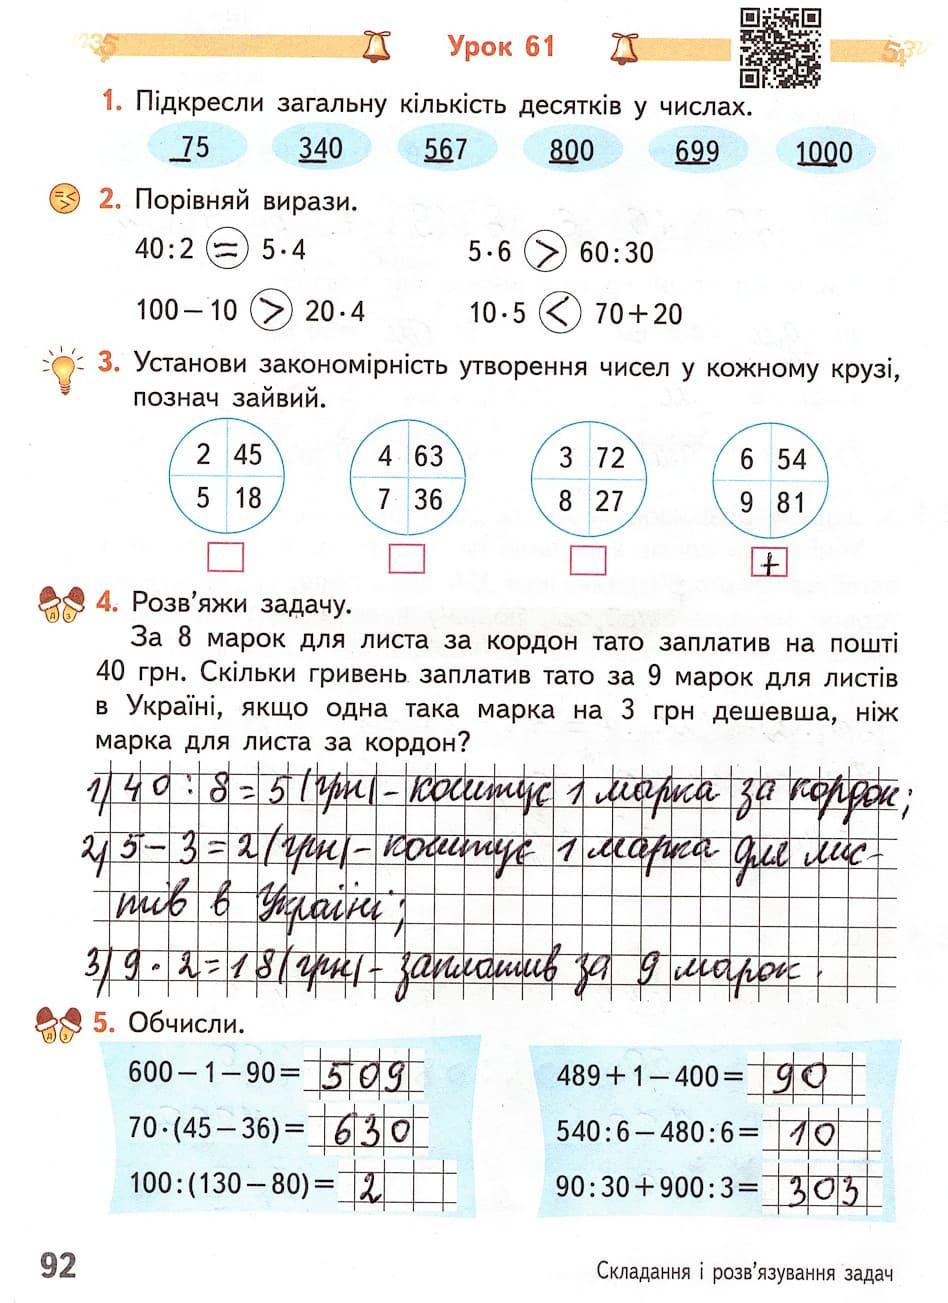 Урок 61
1. Підкресли загальну кількість десятків у числах.
75 340 567 800 699 1000
2. Порівняй вирази.
40:2 = 5·4 5·6 > 60:30
100–10 > 20·4 10·5 < 70+20
3. Установи закономірність утворення чисел у кожному крузі,
познач зайвий.
2 45 4 63 3 72 6 54
5 18 7 36 8 27 9 81
+
4. Розв'яжи задачу.
За 8 марок для листа за кордон тато заплатив на пошті
40 грн. Скільки гривень заплатив тато за 9 марок для листів
в Україні, якщо одна така марка на 3 грн дешевша, ніж
марка для листа за кордон?
1) 40 : 8 = 5 (грн) – коштує 1 марка за кордон;
2) 5 – 3 = 2 (грн) – коштує 1 марка для лис-
тів в Україні;
3) 9 · 2 = 18 (грн) – заплатив за 9 марок.
5. Обчисли.
600–1–90= 509 489+1–400= 90
70·(45–36)= 630 540:6–480:6= 10
100:(130–80)= 2 90:30+900:3= 303
92
Складання і розв'язування задач